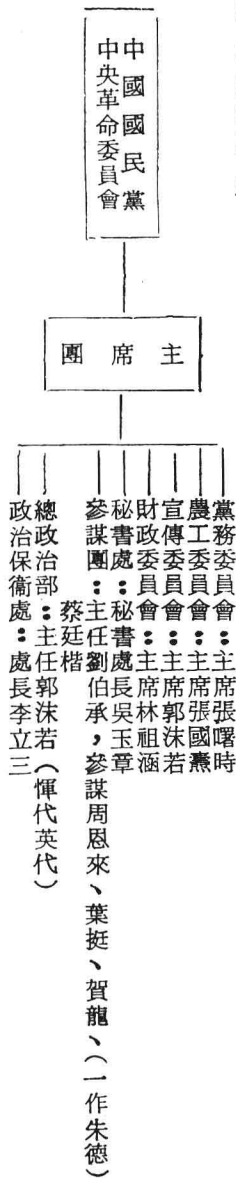 中國國民黨
中央革命委員會
主席團
黨務委員會：主席張曙時
農工委員會：主席張國燾
宣傳委員會：主席郭沫若
財政委員會：主席林祖涵
秘書處：秘書處長吳玉章
參謀團：主任劉伯承，參謀周恩來、葉挺、賀龍、（一作朱德）
蔡廷楷
總政治部：主任郭沫若（惲代英代）
政治保衞處：處長李立三